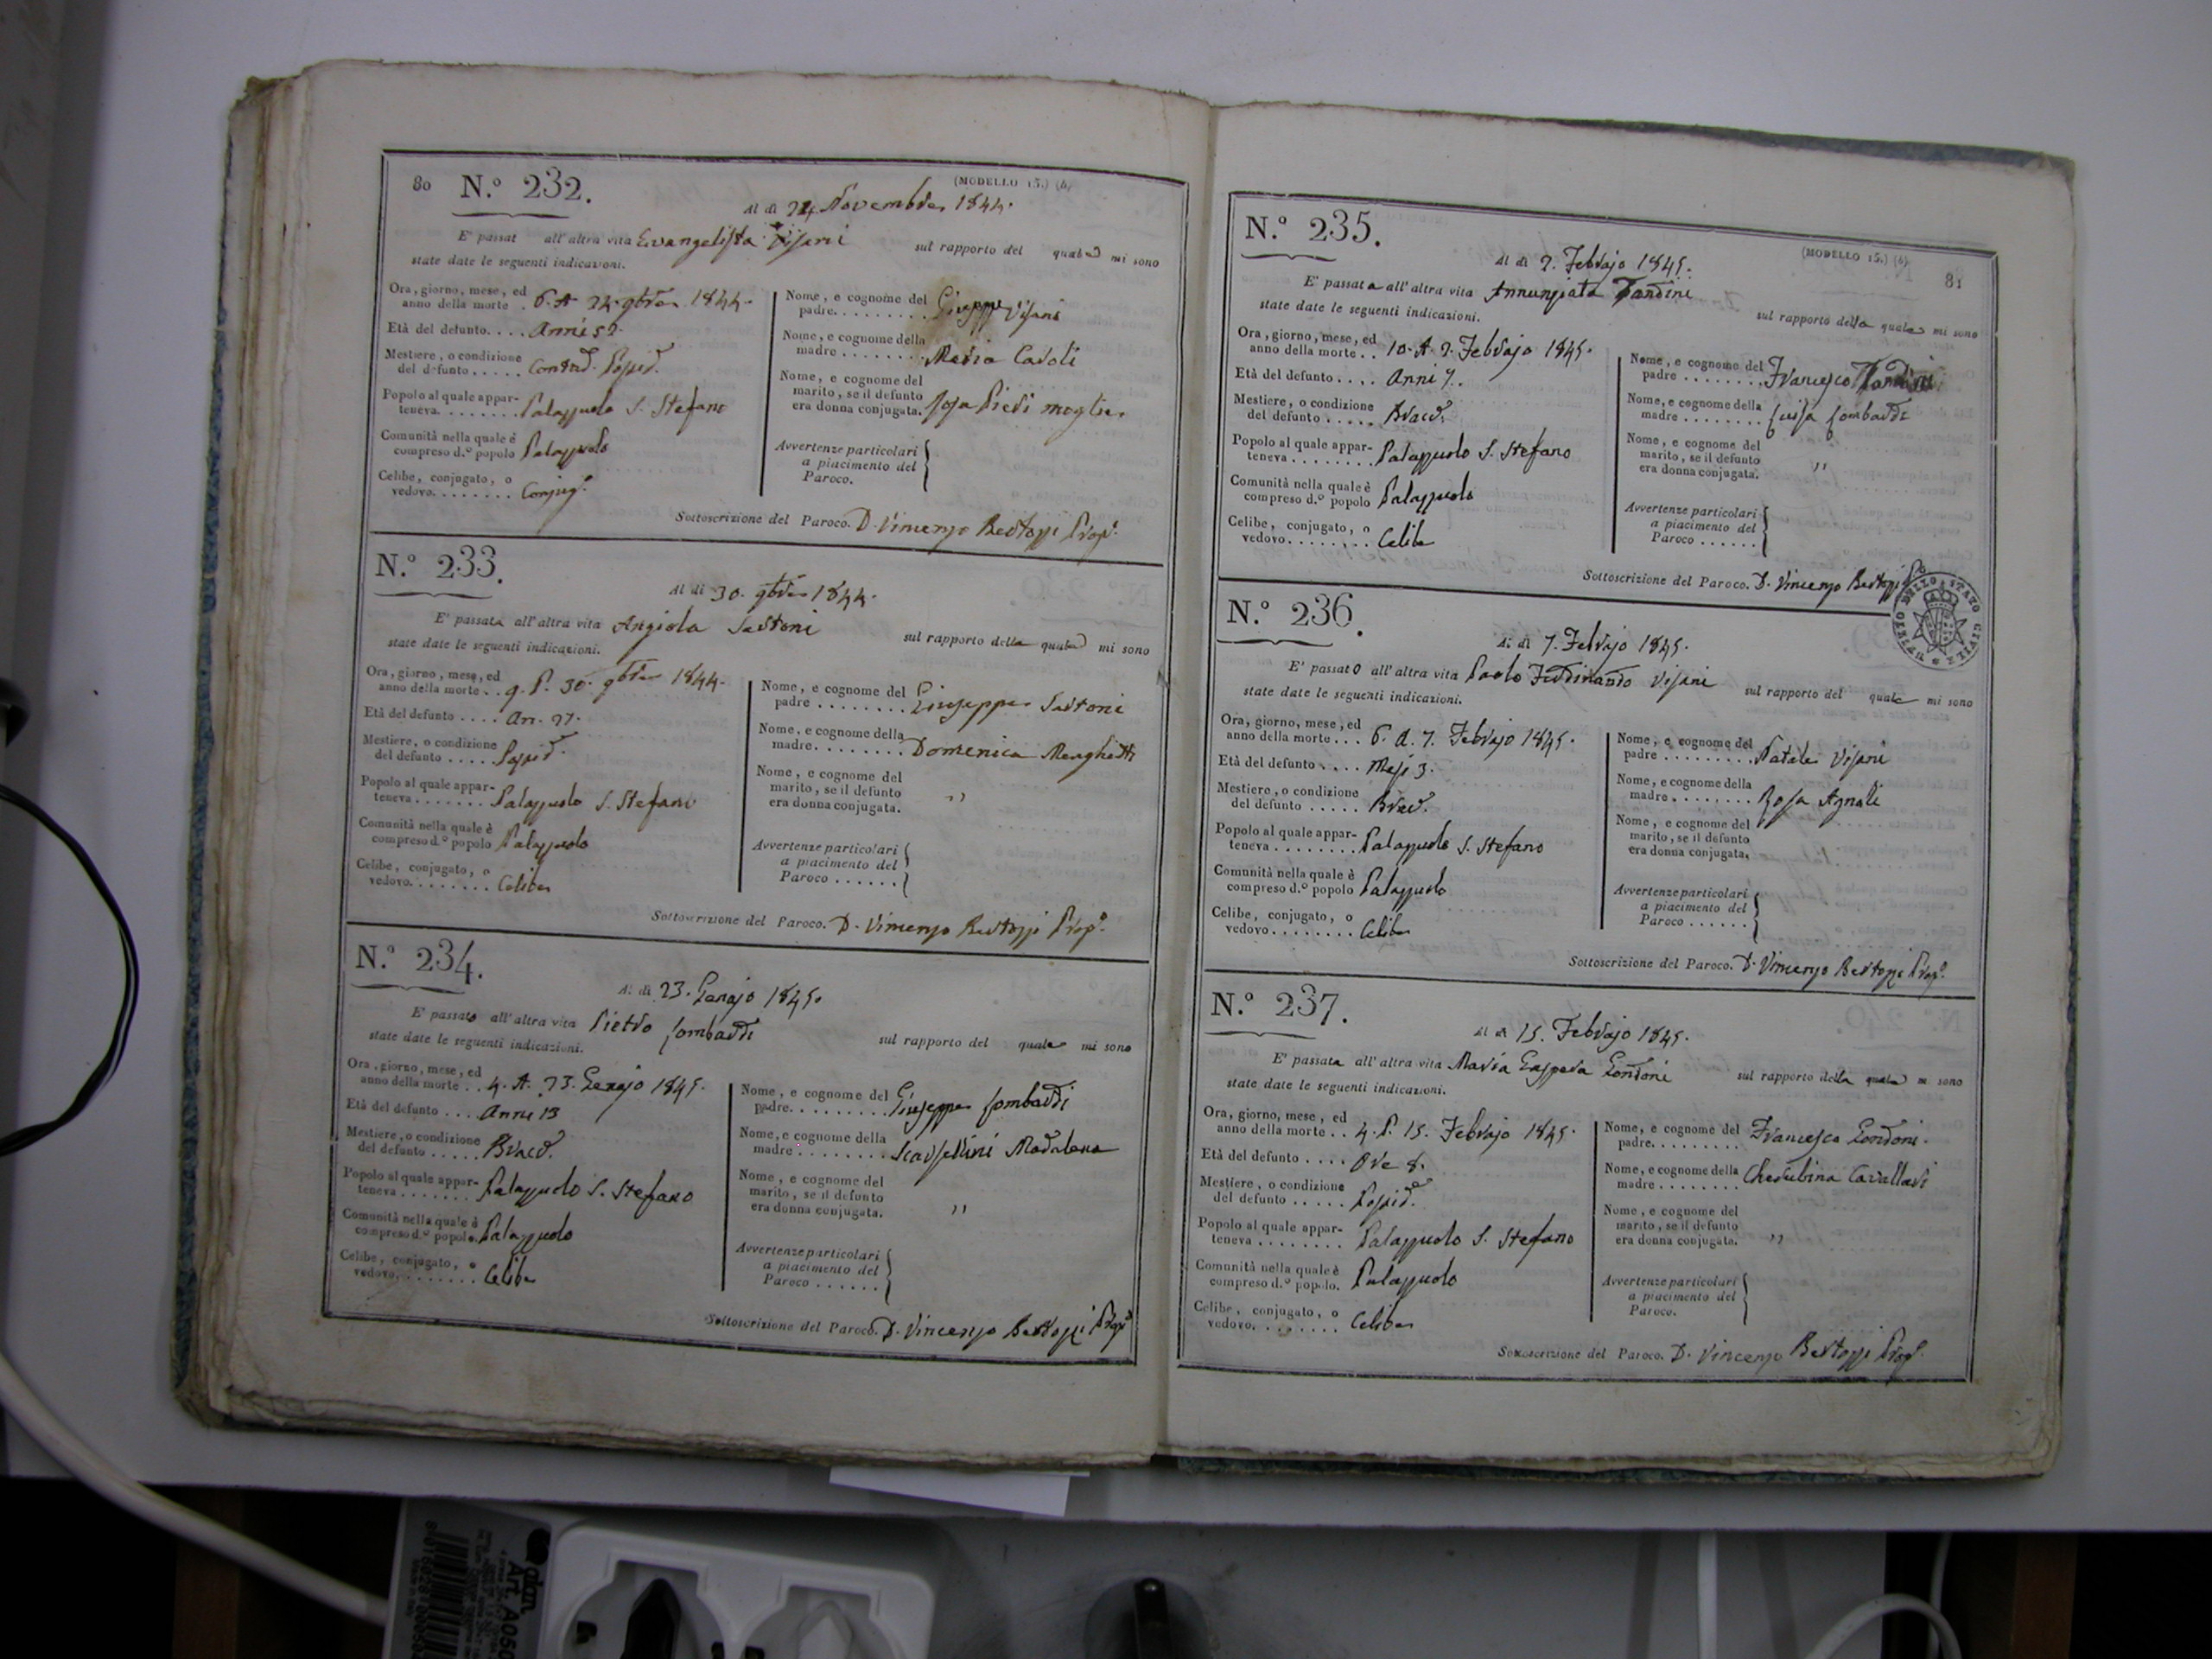 80 N.º 232. (MODELLO 15.) (6)
Al dì 24 Novembre 1844.
E' passat all'altra vita Evangelista Visani sul rapporto del quale mi sono
state date le seguenti indicazioni.
Ora, giorno, mese, ed
anno della morte . 6. A 24. 9bre 1844.
Età del defunto. . . . Anni 52.
Mestiere, o condizione
del defunto . . . . . Contad. Possid.
Popolo al quale appar-
teneva. . . . . . . . Palazzuolo S. Stefano
Comunità nella quale è
compreso d.º popolo Palazzuolo
Celibe, conjugato, o
vedovo. . . . . . . . Conjug.º
Nome, e cognome del
padre. . . . . . . . . Giuseppe Visani
Nome, e cognome della
madre . . . . . . . . Maria Caroli
Nome, e cognome del
marito, se il defunto
era donna conjugata. Rosa Pieri moglie
Avvertenze particolari
a piacimento del
Paroco.
Sottoscrizione del Paroco. D. Vincenzo Bertozzi Prop.º
N.º 233.
Al dì 30. 9bre 1844.
E' passata all'altra vita Angiola Sartoni sul rapporto della quale mi sono
state date le seguenti indicazioni.
Ora, giorno, mese, ed
anno della morte . . 9. P. 30. 9bre 1844.
Età del defunto . . . . An. 27.
Mestiere, o condizione
del defunto . . . . . Possid.
Popolo al quale appar-
teneva . . . . . . . Palazzuolo S. Stefano
Comunità nella quale è
compreso d.º popolo Palazzuolo
Celibe, conjugato, o
vedovo. . . . . . . . Celibe
Nome, e cognome del
padre . . . . . . . . Giuseppe Sartoni
Nome, e cognome della
madre. . . . . . . . Domenica Menghetti
Nome, e cognome del
marito, se il defunto
era donna conjugata. "
Avvertenze particolari
a piacimento del
Paroco . . . . . .
Sottoscrizione del Paroco. D. Vincenzo Bertozzi Prop.º
N.º 234.
Al dì 23. Genajo 1845.
E' passato all'altra vita Pietro Lombardi sul rapporto del quale mi sono
state date le seguenti indicazioni.
Ora, giorno, mese, ed
anno della morte . . 4. A. 23. Genajo 1845.
Età del defunto . . . Anni 13
Mestiere, o condizione
del defunto . . . . . Bracc.
Popolo al quale appar-
teneva . . . . . . . Palazzuolo S. Stefano
Comunità nella quale è
compreso d.º popolo. Palazzuolo
Celibe, conjugato, o
vedovo. . . . . . . . Celibe
Nome, e cognome del
padre. . . . . . . . . Giuseppe Lombardi
Nome, e cognome della
madre . . . . . . . . Scarsellini Madalena
Nome, e cognome del
marito, se il defunto
era donna conjugata. "
Avvertenze particolari
a piacimento del
Paroco . . . . . .
Sottoscrizione del Paroco. D. Vincenzo Bertozzi Prop.º
N.º 235. (MODELLO 15.) (6) 81
Al dì 2. Febrajo 1845.
E' passata all'altra vita Annunziata Tandini sul rapporto della quale mi sono
state date le seguenti indicazioni.
Ora, giorno, mese, ed
anno della morte . . 10. A. 2. Febrajo 1845.
Età del defunto . . . . Anni 7.
Mestiere, o condizione
del defunto . . . . . Bracc.
Popolo al quale appar-
teneva . . . . . . . . Palazzuolo S. Stefano
Comunità nella quale è
compreso d.º popolo Palazzuolo
Celibe, conjugato, o
vedovo. . . . . . . . Celibe
Nome, e cognome del
padre . . . . . . . . Francesco Tandini
Nome, e cognome della
madre . . . . . . . . Luisa Lombardi
Nome, e cognome del
marito, se il defunto
era donna conjugata. "
Avvertenze particolari
a piacimento del
Paroco . . . . . .
Sottoscrizione del Paroco. D. Vincenzo Bertozzi
UFIZIO DELLO STATO CIVILE
N.º 236.
Al dì 7. Febrajo 1845.
E' passato all'altra vita Paolo Ferdinando Visani sul rapporto del quale mi sono
state date le seguenti indicazioni.
Ora, giorno, mese, ed
anno della morte . . . 6. A. 7. Febrajo 1845.
Età del defunto . . . . Mesi 3.
Mestiere, o condizione
del defunto . . . . . Bracc.
Popolo al quale appar-
teneva . . . . . . . . Palazzuolo S. Stefano
Comunità nella quale è
compreso d.º popolo Palazzuolo
Celibe, conjugato, o
vedovo. . . . . . . . Celibe
Nome, e cognome del
padre . . . . . . . . . Natale Visani
Nome, e cognome della
madre . . . . . . . . Rosa Agnoli
Nome, e cognome del
marito, se il defunto
era donna conjugata.
Avvertenze particolari
a piacimento del
Paroco . . . . . .
Sottoscrizione del Paroco. D. Vincenzo Bertozzi Prop.º
N.º 237.
Al dì 15. Febrajo 1845.
E' passata all'altra vita Maria Gaspera Londoni sul rapporto della quale mi sono
state date le seguenti indicazioni.
Ora, giorno, mese, ed
anno della morte . . 4. P. 15. Febrajo 1845.
Età del defunto . . . . Ore 8.
Mestiere, o condizione
del defunto . . . . . Possid.
Popolo al quale appar-
teneva . . . . . . . . Palazzuolo S. Stefano
Comunità nella quale è
compreso d.º popolo. Palazzuolo
Celibe, conjugato, o
vedovo. . . . . . . . Celibe
Nome, e cognome del
padre. . . . . . . . . Francesco Londoni.
Nome, e cognome della
madre . . . . . . . . Cherubina Cavallari
Nome, e cognome del
marito, se il defunto
era donna conjugata. "
Avvertenze particolari
a piacimento del
Paroco.
Sottoscrizione del Paroco. D. Vincenzo Bertozzi Prop.º